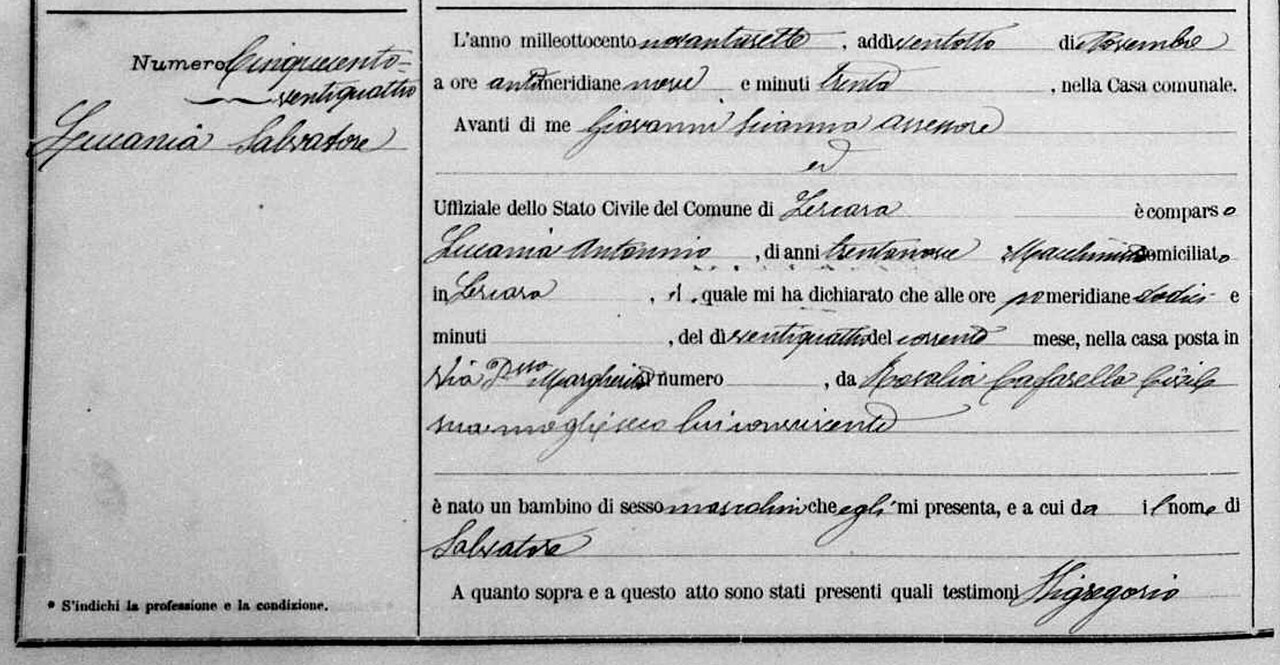 Numero Cinquecento-
ventiquattro
Luccania Salvatore
* S'indichi la professione e la condizione.
L'anno milleottocento novantasette, addì ventotto di Novembre
a ore antimeridiane nove e minuti trenta, nella Casa comunale.
Avanti di me Giovanni Scianna Assessore
ed
Uffiziale dello Stato Civile del Comune di Lercara è comparso
Luccania Antonino, di anni trentanove domiciliato
in Lercara, il quale mi ha dichiarato che alle ore pomeridiane dodici e
minuti, del dì ventiquattro del corrente mese, nella casa posta in
Via Margherita al numero, da Rosalia Cafarella Civile
sua moglie seco lui convivente
è nato un bambino di sesso mascolino che egli mi presenta, e a cui dà il nome di
Salvatore
A quanto sopra e a questo atto sono stati presenti quali testimoni Digregorio